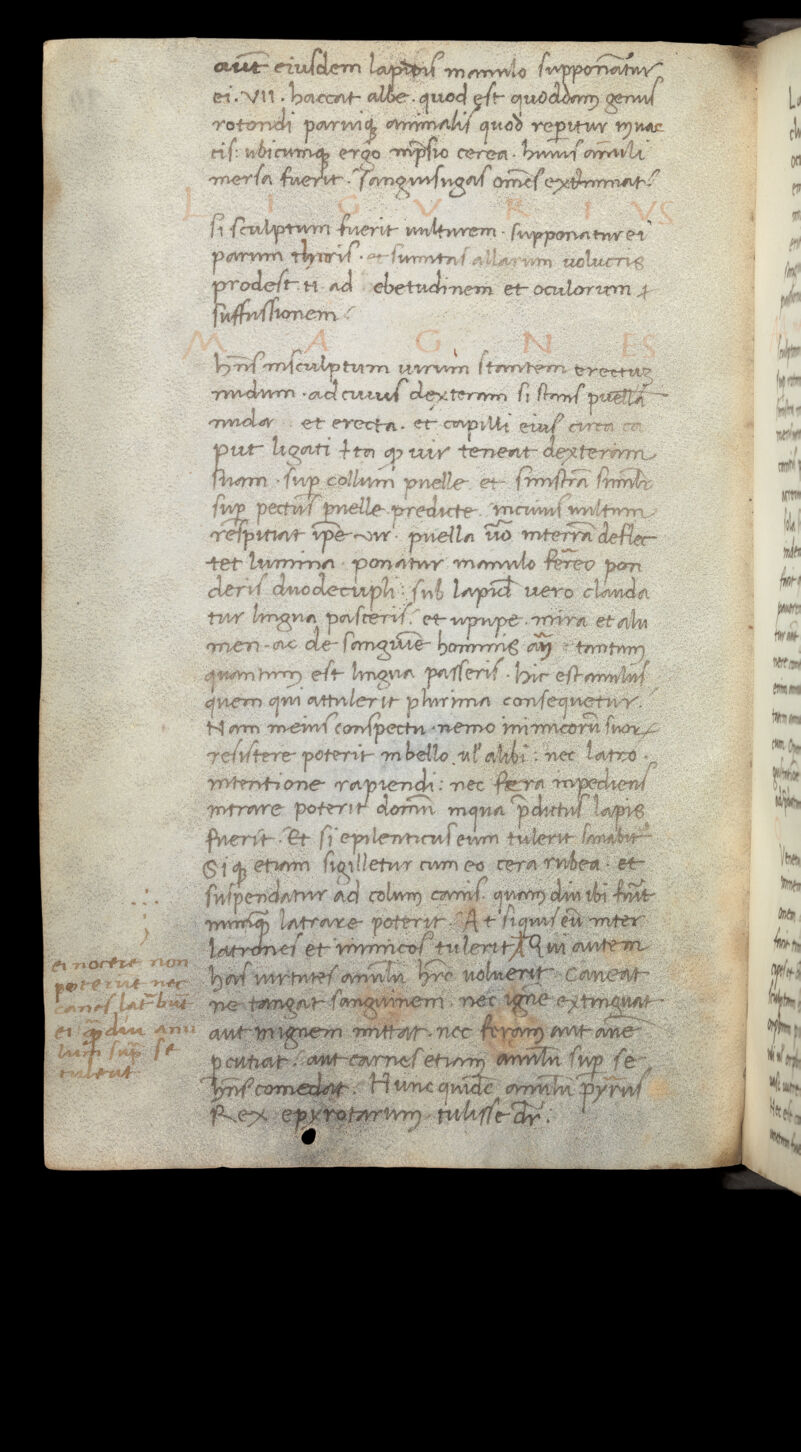 aut̄ eiusdem lapidis in anulo supponat̄ur
ei · VII · haccat albe · quod ęst quoddam genus
rotondi paruiq; animalis quod rep̄itur in uac
cis : ubicumq; ergo inp̄sio cerea · huius an̄uli
mersa fuerit · sanguisugas om̄es exterminat :
LIGVRIVS
si sculptum fuerit uulturem · supponatur ei
parum thuris · et sumitas allarum uolucris
prodest ti ad ebetudinem et oculorum
suffussionem :
MAGNES
hn̄s insculptum uirum stantem erectum
nudum · ad cuius dexteram si stans puella
nuda et erecta · et capilli eius circa ca
put ligati ita qp uir teneat dexteram
suam · sup collum puelle et sinistrā
sup pectus puelle predicte · in cuius uultum
respitiat ip̄e uir · puella uō in terrā deflec
tet lumina · ponatur in anulo ferreo pon
deris duodecupli : sub lapid̄ uero clauda
tur lingua passeris · et upupe · mira et alu
men · ac de sanguīe hominis tantum
quantum est lingua passeris · hic est anulus
quem qui attulerit plurima consequetur ·
Nam in eius conspectu · nemo inimicorū suor
resistere poterit in bello ul alibi : nec latro ·
intentione rapiendi : nec fera inpediens
intrare poterit domū in qua p̄dictus lapis
fuerit · Et si epilenticus eum tulerit sanabit
Si qp etiam sigilletur cum eo cera rubea · et
suspendatur ad colum canis · quamdiu ibi fu̅it
nunq̄ latrare poterit · At siquis eū inter
latrones et inimicos tulerit Qui autem
has uirtutes anuli hr̄e uoluerit · Caueat
ne tangat sanguinem · nec igne extinguat
aut in ignem mittat · nec feram aut auē
p cutiat : aut carnes etiam anulū sup se
hn̄s comedat · Hunc quidē anulū pyrus
Rex epyrotarum tulisse dr̄ :
ei nocere non
poterit nec
canes lat̄būt
ei q̄mdiu anu
lum sup̄ se
tulerit